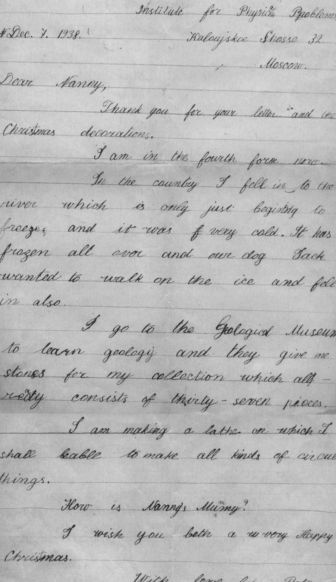 Institute for Physical Problems
Dec. 7. 1938. Kalonjskoe Shosse 32
Moscow.
Dear Nanny,
Thank you for your letter and the
Christmas decorations.
I am in the fourth form now.
In the country I fell in to the
river which is only just begining to
freezeng and it was f very cold. It has
frozen all over and our dog Jack
wanted to walk on the ice and fell
in also.
I go to the Geological Museum
to learn geology and they give me
stones for my collection which all-
ready consists of thirty-seven pieces.
I am making a lathe on which I
shall be able to make all kinds of
things.
How is Nanny's Mumy?
I wish you both a very Happy
Christmas.
With love